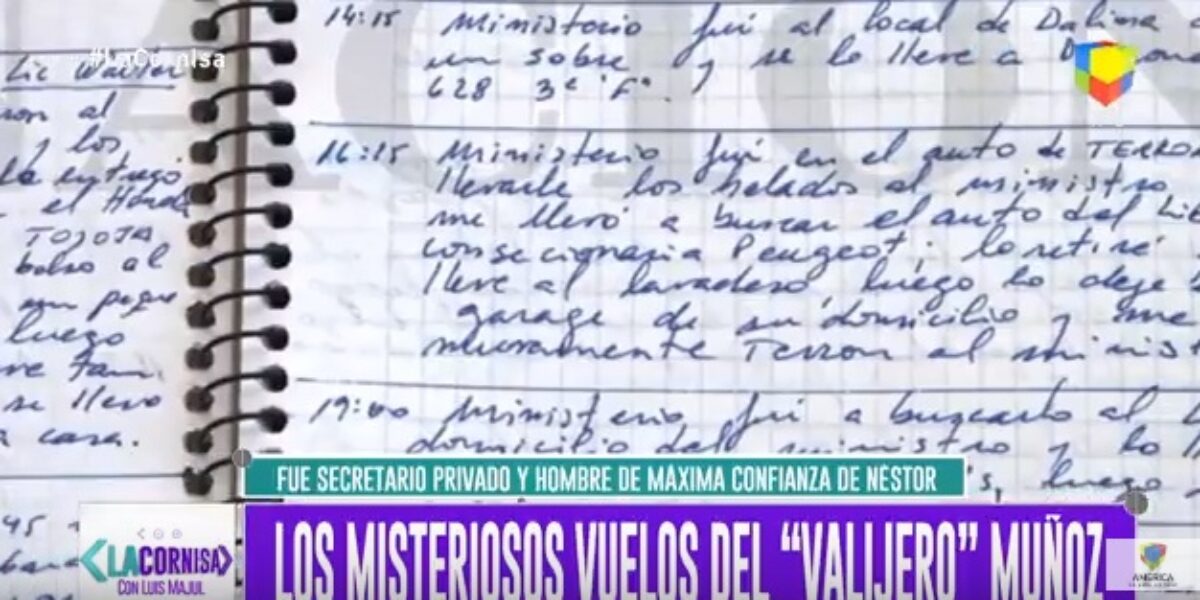 #LaCornisa
Lic Walter
ron al
y los
la entregó
el Honda
TOJOTA
bolso al
un peque
luego
se llevo
a casa.
45
14:15 Ministerio fui al local de Dalima
un sobre y se lo lleve a
628 3º "F".
16:15 Ministerio fui en el auto de TERRON
llevarle los helados al ministro,
me llevó a buscar el auto del Lic
consecionaria Peugeot; lo retiré
lleve al lavadero luego lo deje
garage de su domicilio y me
nuevamente Terron al minist
19:00 Ministerio fui a buscarlo al
domicilio del ministro y lo
luego
FUE SECRETARIO PRIVADO Y HOMBRE DE MÁXIMA CONFIANZA DE NÉSTOR
<LACORNISA>
CON LUIS MAJUL
LOS MISTERIOSOS VUELOS DEL "VALIJERO" MUÑOZ
AMÉRICA